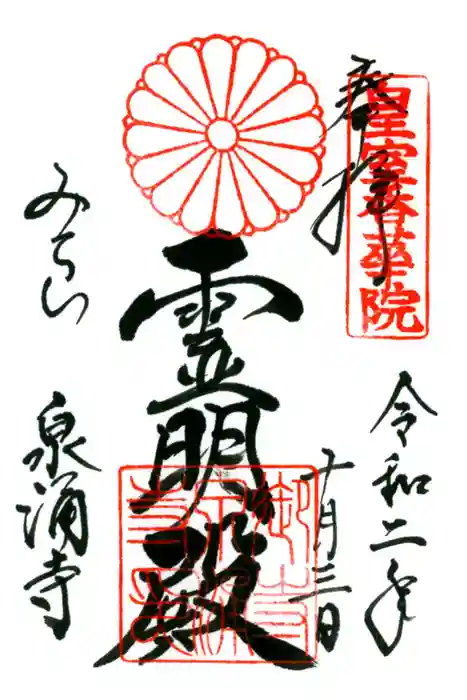 奉拝
皇室香華院
令和二年
十月三日
霊明殿
みてら
泉涌寺